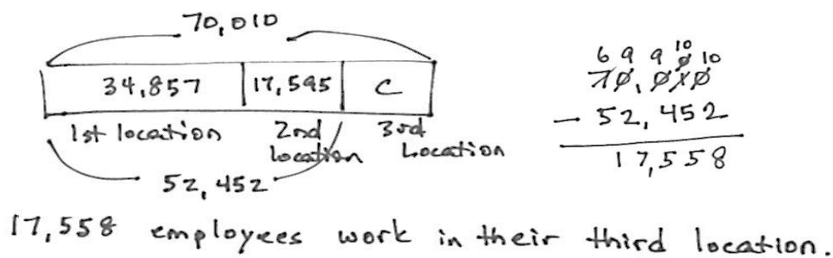 70,010
34,857 17,595 C
1st location 2nd location 3rd Location
52,452
6 9 9 10 10
70,010
- 52,452
17,558
17,558 employees work in their third location.